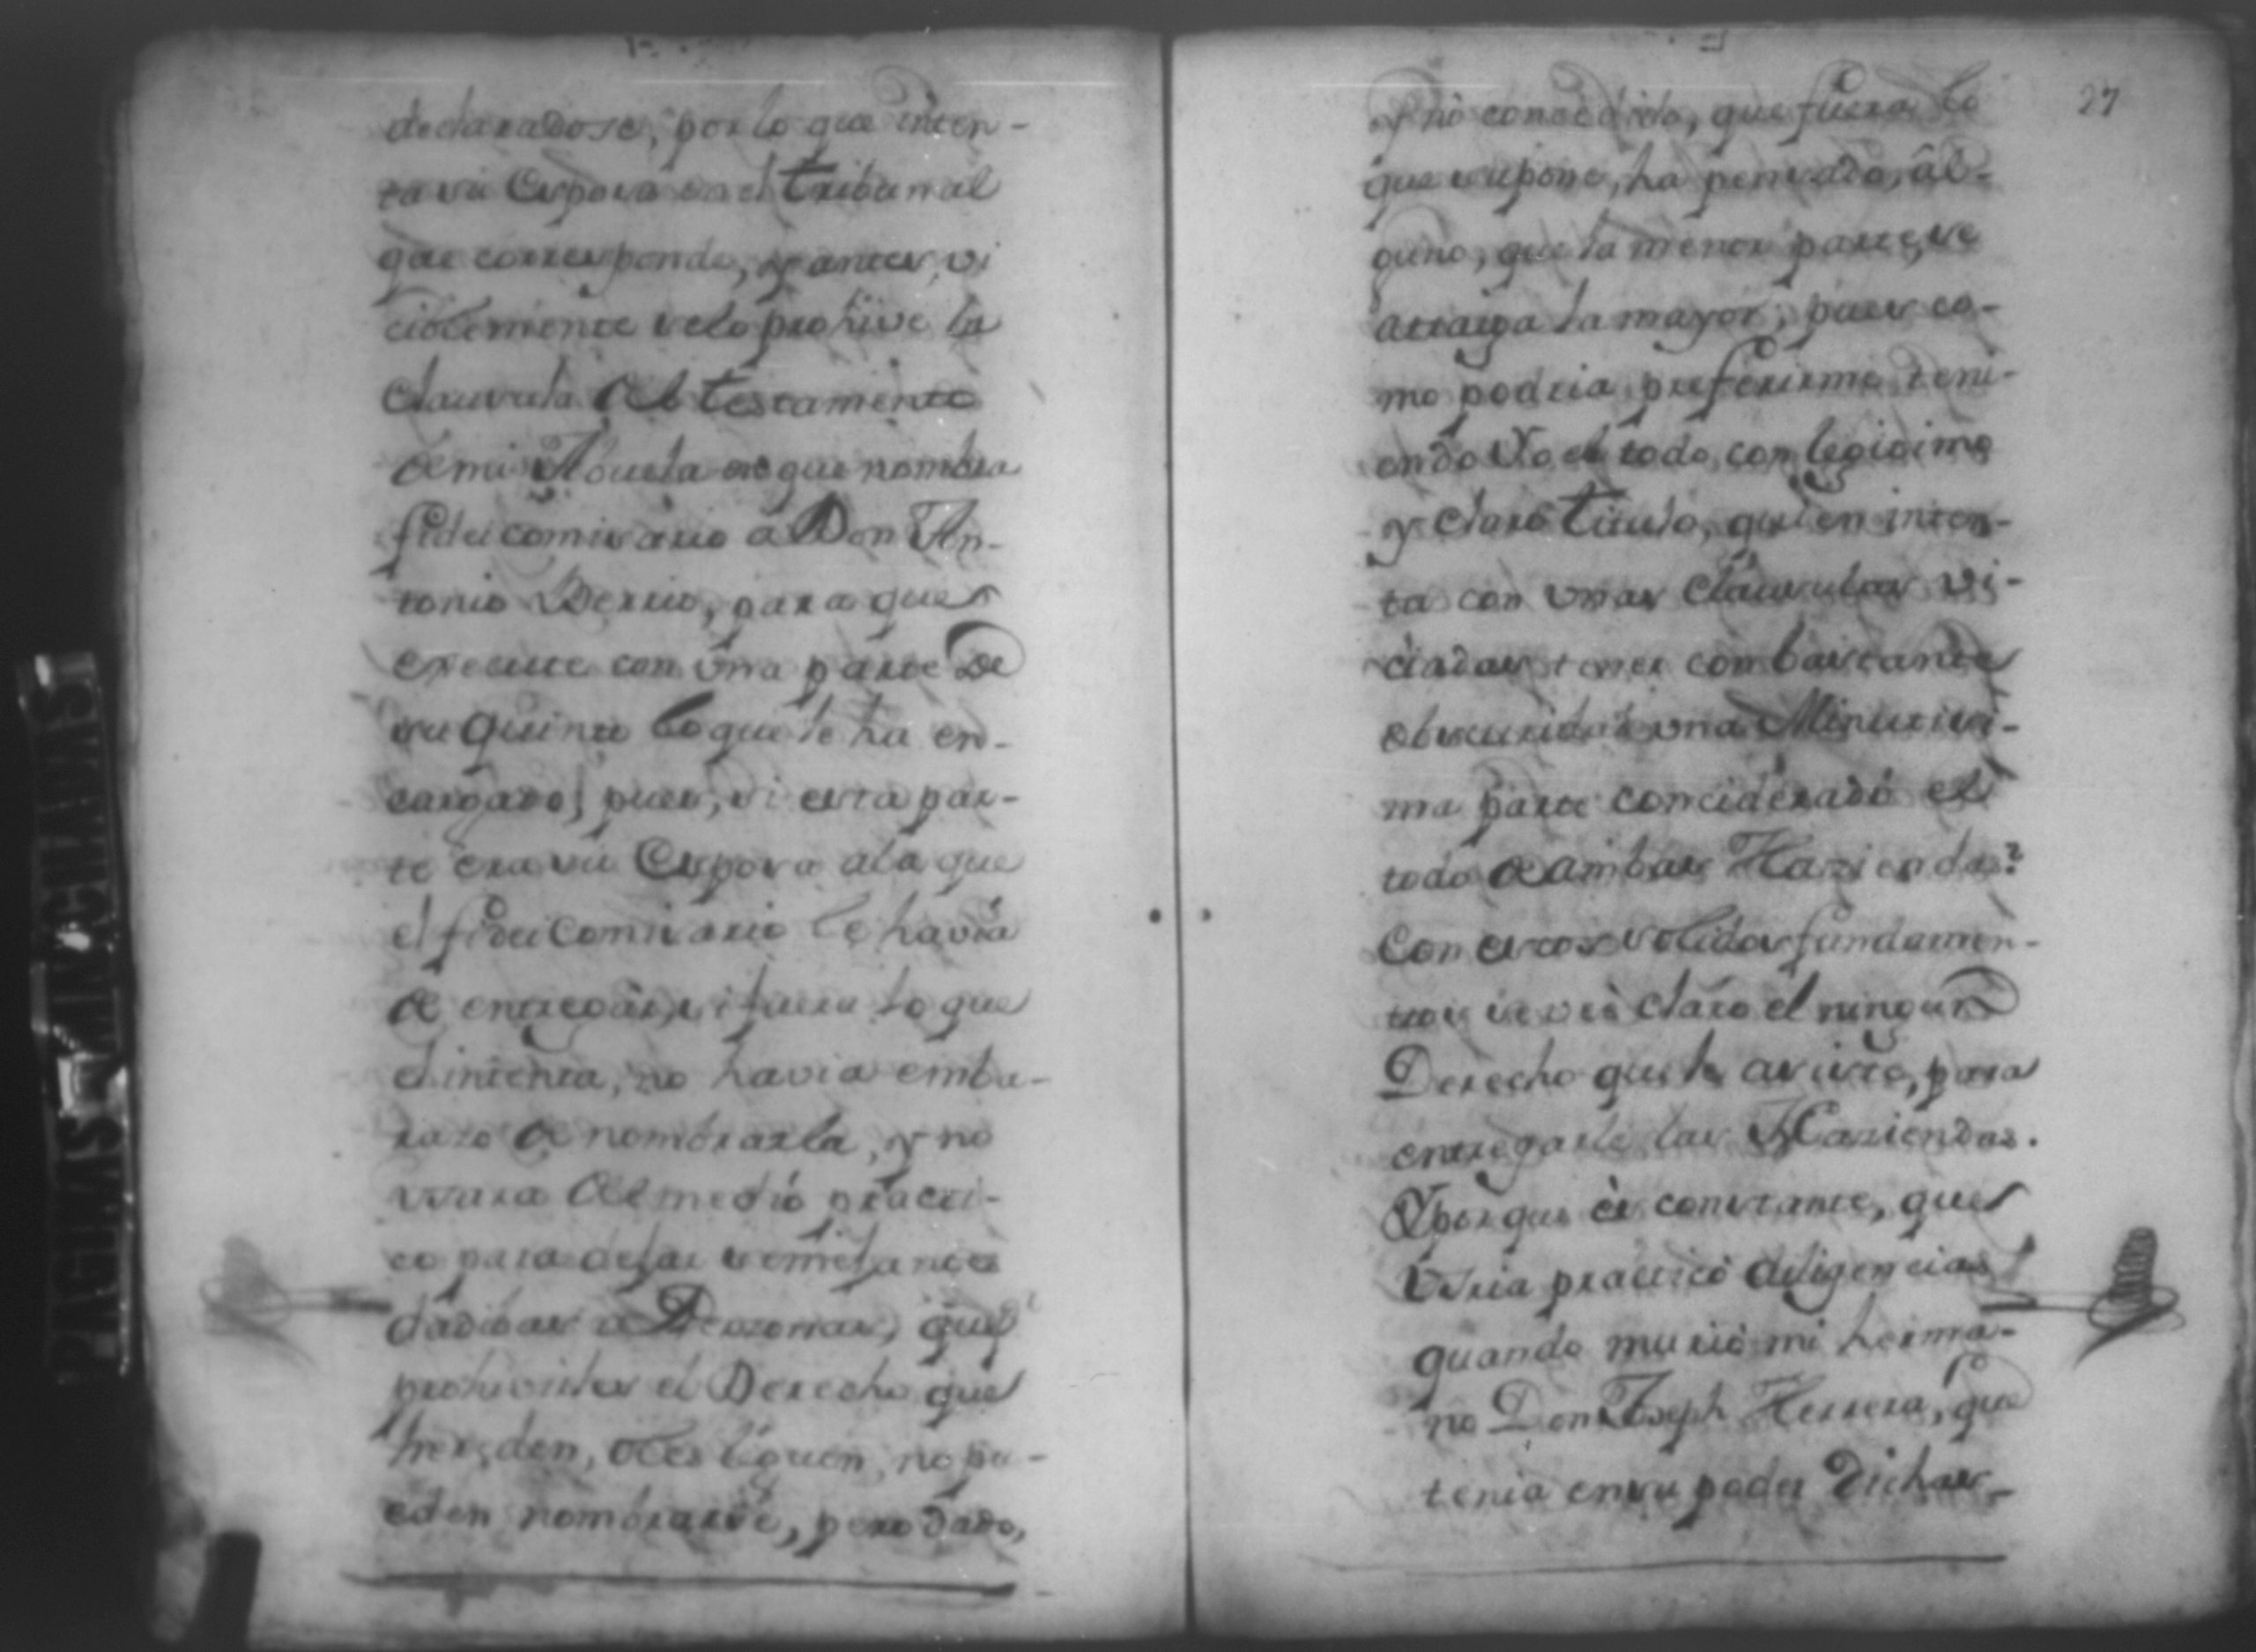 declaradose, por lo que inten-
ta su Esposa en el tribunal
que corresponde, y antes, vi
ciblemente se lo prohive la
clausula del testamento
de mi Abuela en que nombra
fideicomisario á Don An-
tonio Berrio, para que
execute con una parte de
su quinto lo que le ha en-
cargado; pues, si esta par-
te era su Esposa a la que
el fideicomisario le havia
de entregar, si fuera lo que
el intenta, no havia emba-
razo de nombrarla, y no
usara del medio practi-
co para dejar semejantes
dadibas a Personas, que
prohividas el Derecho que
hereden, ó les leguen, no pu-
eden nombrarse, pero dado,
27
y no concedido, que fuera lo
que supone, ha pensado, al-
guno, que la menor parte, se
atraiga la mayor; pues co-
mo podria preferirme teni-
endo Yo el todo, con legitimo
y claro titulo, quien inten-
ta con unas clausulas vi-
ciadas tener con bastante
obscuridad una Minutisi-
ma parte conciderado el
todo de ambas Haziendas?
Con estos solidos fundamen-
tos se veé claro el ningun
Derecho que le asiste, para
entregarle las Haziendas.
Y porque és constante, que
Usria practicó diligencias
quando murió mi herma-
no Don Joseph Herrera, que
tenia en su poder dichas
PAGINAS MANCHADAS